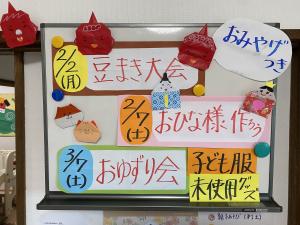 おみやげ
つき
2/2
(月)
豆まき大会
2/7
(土)
おひな様作ろう
3/7
(土)
おゆずり会
子ども服
未使用グッズ